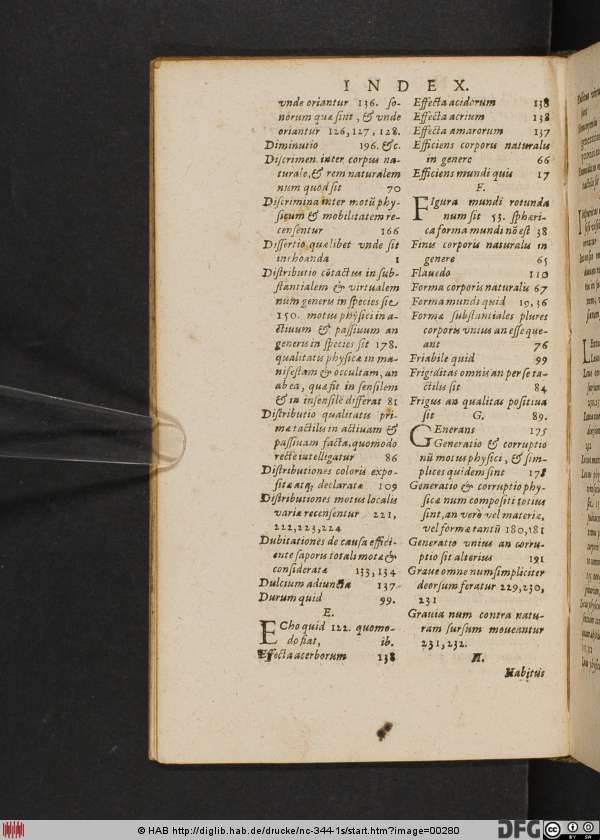 INDEX.
vnde oriantur 136. so-
norum quæ sint, & vnde
oriantur 126, 127, 128.
Diminutio 196. &c.
Discrimen inter corpus na-
turale, & rem naturalem
num quod sit 70
Discrimina inter motū phy-
sicum & mobilitatem re-
censentur 166
Dissertio quælibet vnde sit
inchoanda 1
Distributio cōtactus in sub-
stantialem & virtualem
num generis in species sit
150. motus physici in a-
ctiuum & passiuum an
generis in species sit 178.
qualitatis physicæ in ma-
nifestam & occultam, an
ab ea, quæ fit in sensilem
& in insensilē differat 81
Distributio qualitatis pri-
mæ tactilis in actiuam &
passiuam facta, quomodo
rectè intelligatur 86
Distributiones coloris expo-
sitæ atq; declaratæ 109
Distributiones motus localis
variæ recensentur 221,
222, 223, 224
Dubitationes de causa effici-
ente saporis totali motæ &
consideratæ 133, 134
Dulcium adiuncta 137
Durum quid 99.
E.
ECho quid 122. quomo-
do fiat, ib.
Effecta acerborum 138
Effecta acidorum 138
Effecta acrium 138
Effecta amarorum 137
Efficiens corporis naturalis
in genere 66
Efficiens mundi quis 17
F.
FIgura mundi rotunda
num sit 53. sphæri-
ca forma mundi nō est 38
Finis corporis naturalis in
genere 65
Flauedo 110
Forma corporis naturalis 67
Forma mundi quid 19, 36
Formæ substantiales plures
corporis vnius an esse que-
ant 76
Friabile quid 99
Frigiditas omnis an per se ta-
ctilis sit 84
Frigus an qualitas positiua
sit G. 89.
GEnerans 175
Generatio & corruptio
nū motus physici, & sim-
plices quidem sint 178
Generatio & corruptio phy-
sicæ num compositi totius
sint, an verò vel materiæ,
vel formæ tantū 180, 181
Generatio vnius an corru-
ptio sit alterius 191
Graue omne num simpliciter
deorsum feratur 229, 230,
231
Grauia num contra natu-
ram sursum moueantur
231, 232.
H.
Habitus
© HAB http://diglib.hab.de/drucke/nc-344-1s/start.htm?image=00280
DFG
CC BY SA